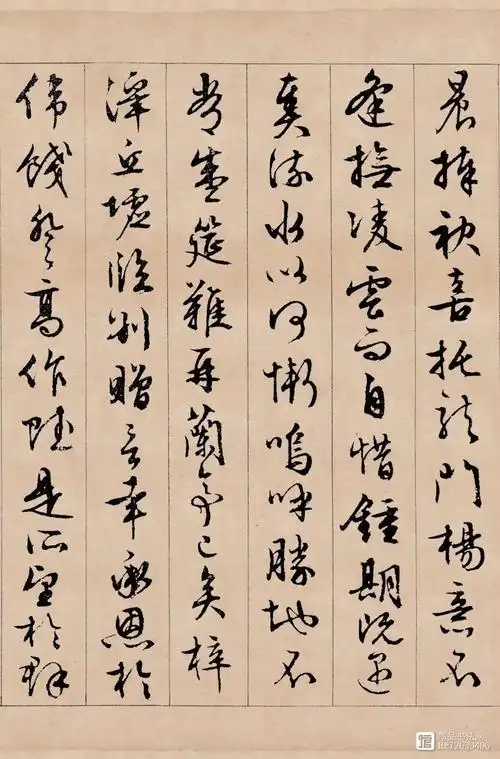 晨捧袂喜托龍門楊意不
逢撫凌雲而自惜鍾期既遇
奏流水以何慚嗚呼勝地不
常盛筵難再蘭亭已矣梓
澤丘墟臨別贈言幸承恩於
偉餞登高作賦是所望於群
品书法网
ID:72639406